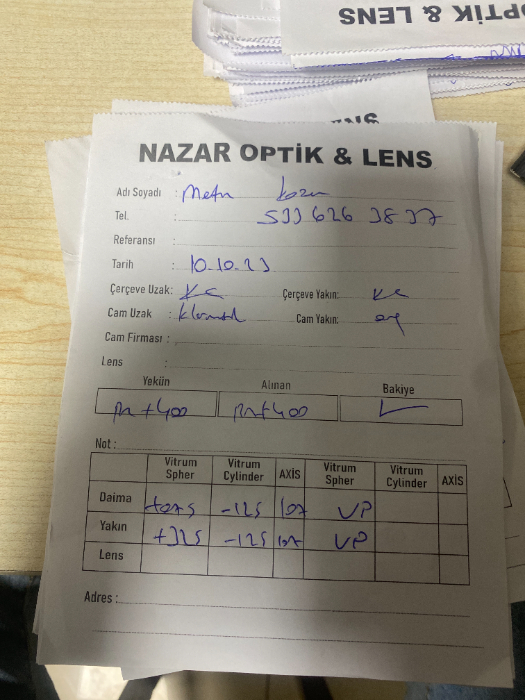 OPTİK & LENS
NAZAR OPTİK & LENS
Adı Soyadı : Metin
Tel. : 533 626 38 37
Referansı :
Tarih : 10.10.23
Çerçeve Uzak: KC Çerçeve Yakın: KC
Cam Uzak : Cam Yakın: org
Cam Firması :
Lens :
Yekün Alınan Bakiye
+400 +400
Not :
Vitrum Spher Vitrum Cylinder AXİS Vitrum Spher Vitrum Cylinder AXİS
Daima +075 -125 107 VP
Yakın +325 -125 107 VP
Lens
Adres :